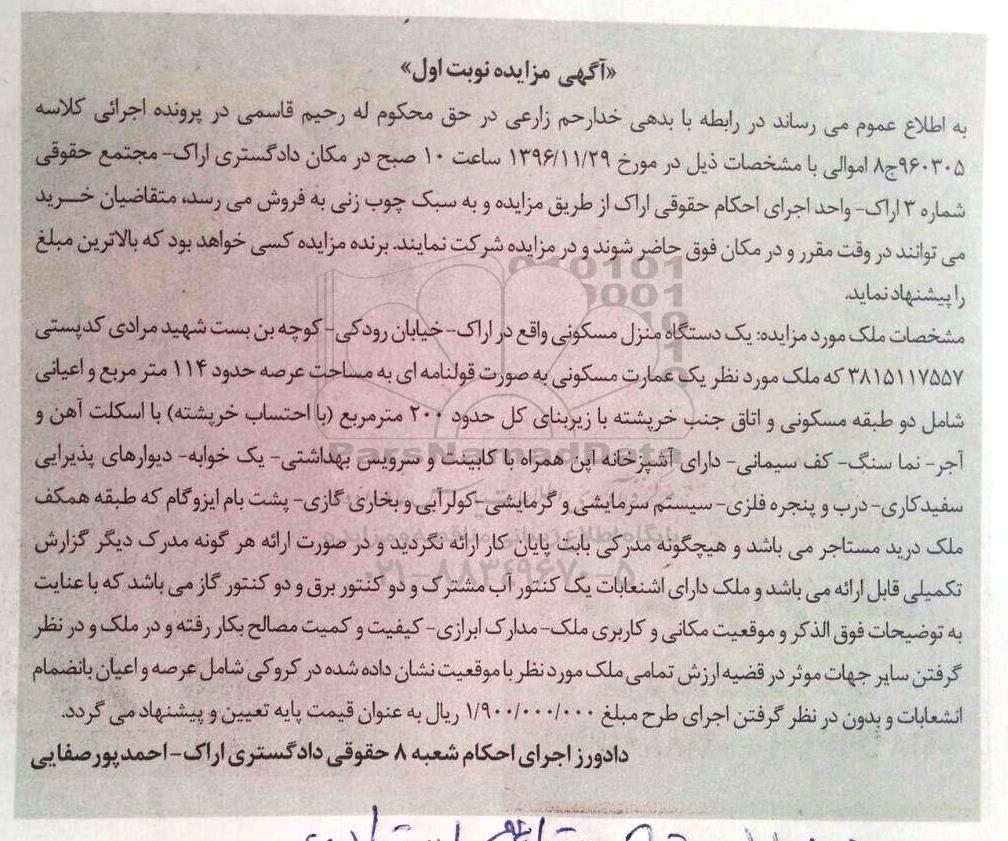 «آگهی مزایده نوبت اول»
به اطلاع عموم می رساند در رابطه با بدهی خدارحم زارعی در حق محکوم له رحیم قاسمی در پرونده اجرائی کلاسه
۹۶۰۳۰۵ج۸ اموالی با مشخصات ذیل در مورخ ۱۳۹۶/۱۱/۲۹ ساعت ۱۰ صبح در مکان دادگستری اراک- مجتمع حقوقی
شماره ۳ اراک- واحد اجرای احکام حقوقی اراک از طریق مزایده و به سبک چوب زنی به فروش می رسد، متقاضیان خرید
می توانند در وقت مقرر و در مکان فوق حاضر شوند و در مزایده شرکت نمایند. برنده مزایده کسی خواهد بود که بالاترین مبلغ
را پیشنهاد نماید.
مشخصات ملک مورد مزایده: یک دستگاه منزل مسکونی واقع در اراک- خیابان رودکی- کوچه بن بست شهید مرادی کدپستی
۳۸۱۵۱۱۷۵۵۷ که ملک مورد نظر یک عمارت مسکونی به صورت قولنامه ای به مساحت عرصه حدود ۱۱۴ متر مربع و اعیانی
شامل دو طبقه مسکونی و اتاق جنب خرپشته با زیربنای کل حدود ۲۰۰ مترمربع (با احتساب خرپشته) با اسکلت آهن و
آجر- نما سنگ- کف سیمانی- دارای آشپزخانه اپن همراه با کابینت و سرویس بهداشتی- یک خوابه- دیوارهای پذیرایی
سفیدکاری- درب و پنجره فلزی- سیستم سرمایشی و گرمایشی-کولرآبی و بخاری گازی- پشت بام ایزوگام که طبقه همکف
ملک درید مستاجر می باشد و هیچگونه مدرکی بابت پایان کار ارائه نگردید و در صورت ارائه هر گونه مدرک دیگر گزارش
تکمیلی قابل ارائه می باشد و ملک دارای اشنعابات یک کنتور آب مشترک و دو کنتور برق و دو کنتور گاز می باشد که با عنایت
به توضیحات فوق الذکر و موقعیت مکانی و کاربری ملک- مدارک ابرازی- کیفیت و کمیت مصالح بکار رفته و در ملک و در نظر
گرفتن سایر جهات موثر در قضیه ارزش تمامی ملک مورد نظر با موقعیت نشان داده شده در کروکی شامل عرصه و اعیان بانضمام
انشعابات و بدون در نظر گرفتن اجرای طرح مبلغ ۱/۹۰۰/۰۰۰/۰۰۰ ریال به عنوان قیمت پایه تعیین و پیشنهاد می گردد.
دادورز اجرای احکام شعبه ۸ حقوقی دادگستری اراک- احمد پورصفایی
ParsNamadData
پایگاه اطلاع رسانی مناقصه و مزایده
۰۲۱-۸۸۳۴۹۶۷۰-۵